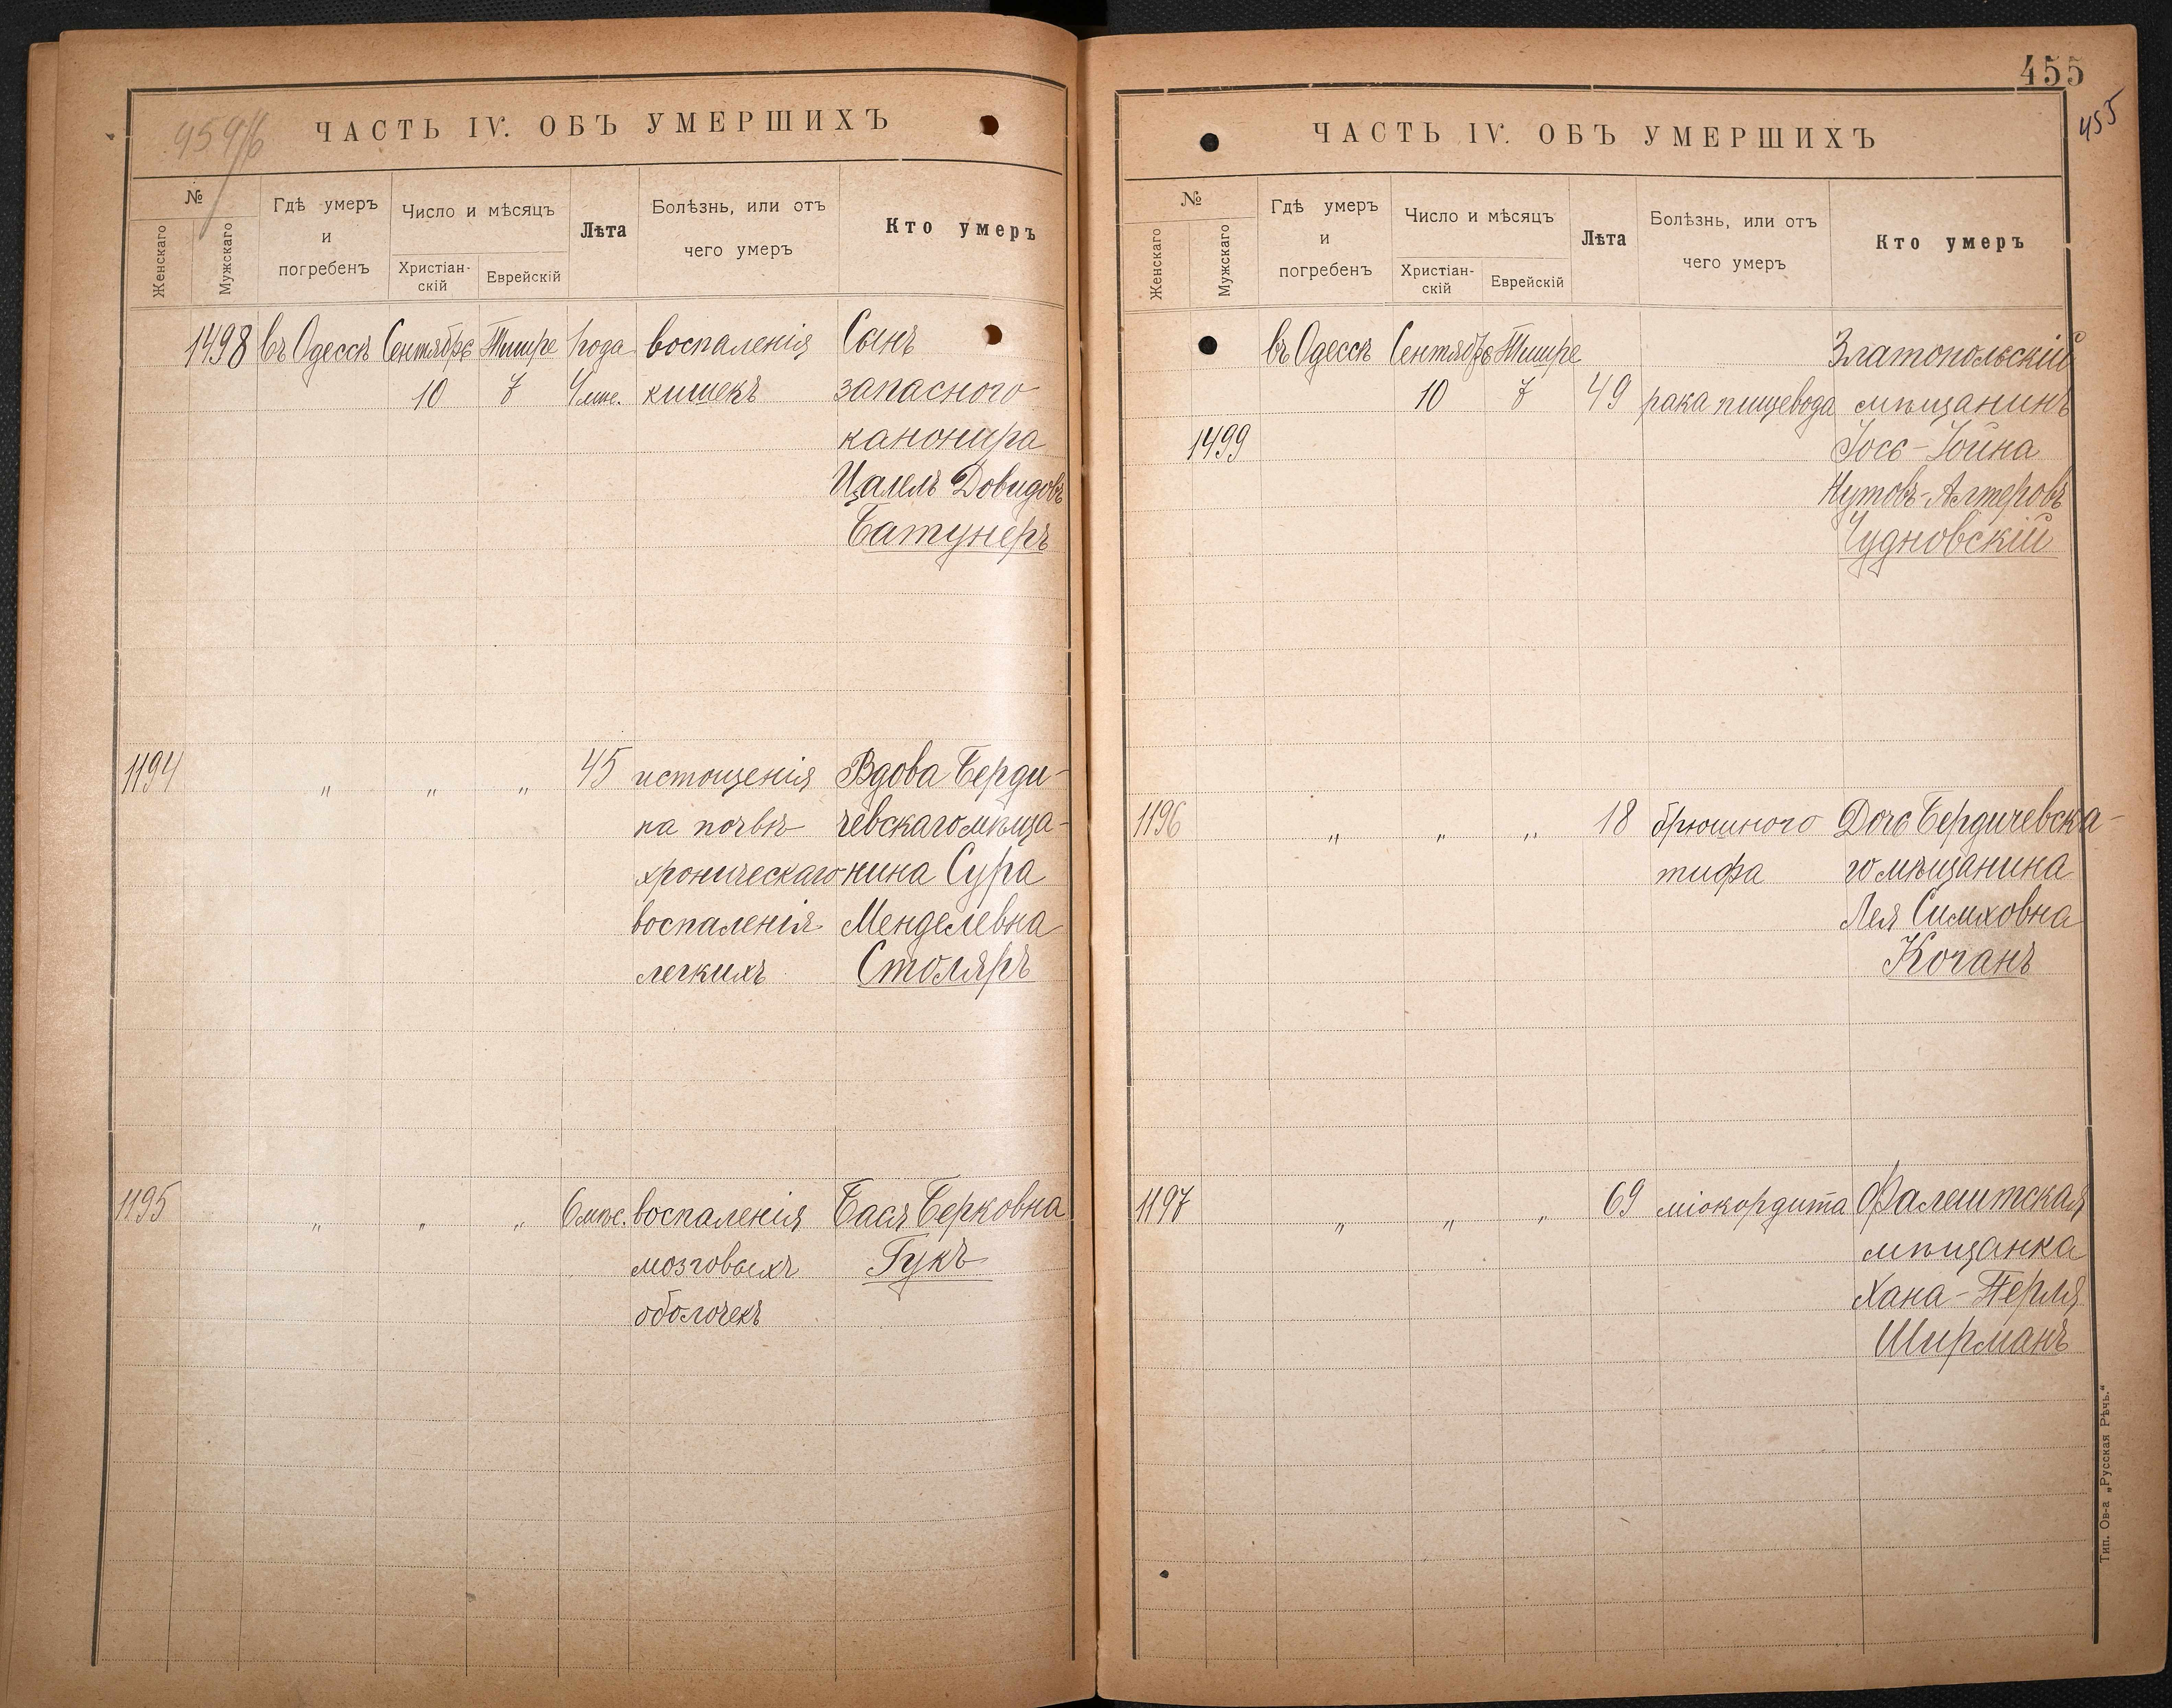 ЧАСТЬ IV. ОБЪ УМЕРШИХЪ
№
Женскаго
Мужскаго
Гдѣ умеръ
и
погребенъ
Число и мѣсяцъ
Христіан-
скій
Еврейскій
Лѣта
Болѣзнь, или отъ
чего умеръ
Кто умеръ
1498 въ Одессѣ Сентябрь Тишре 1 года воспаленія Сынъ
10 7 4 мѣс. кишекъ запасного
канонира
Цалель Довидовъ
Батунеръ
1194 " " " 45 истощенія Вдова Берди-
на почвѣ чевскаго мѣща-
хроническаго нина Сура
воспаленія Менделевна
легкихъ Столяръ
1195 " " " 6 мѣс. воспаленія Бася Берковна
мозговыхъ Гукъ
оболочекъ
455
455
ЧАСТЬ IV. ОБЪ УМЕРШИХЪ
№
Женскаго
Мужскаго
Гдѣ умеръ
и
погребенъ
Число и мѣсяцъ
Христіан-
скій
Еврейскій
Лѣта
Болѣзнь, или отъ
чего умеръ
Кто умеръ
въ Одессѣ Сентябрь Тишре Златопольскій
10 7 49 рака пищевода мѣщанинъ
1499 Іось-Іойна
Нутовъ-Алтеровъ
Чудновскій
1196 " " " 18 брюшного Дочь Бердичевска-
тифа го мѣщанина
Лея Симховна
Коганъ
1197 " " " 69 міокордита Фалештская
мѣщанка
Хана-Перля
Ширманъ
Тип. Ов-а „Русская Рѣчь."